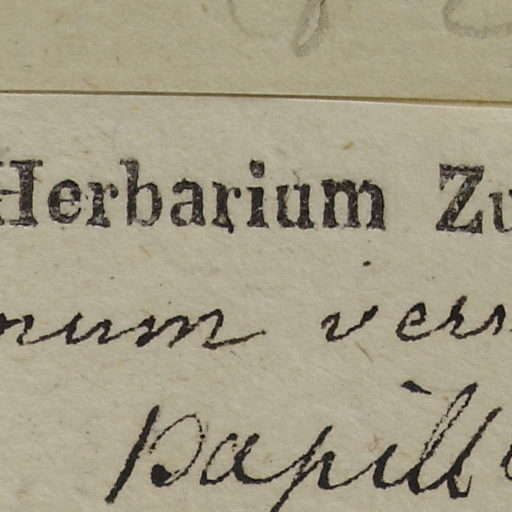 Herbarium Zu
num ver
papill